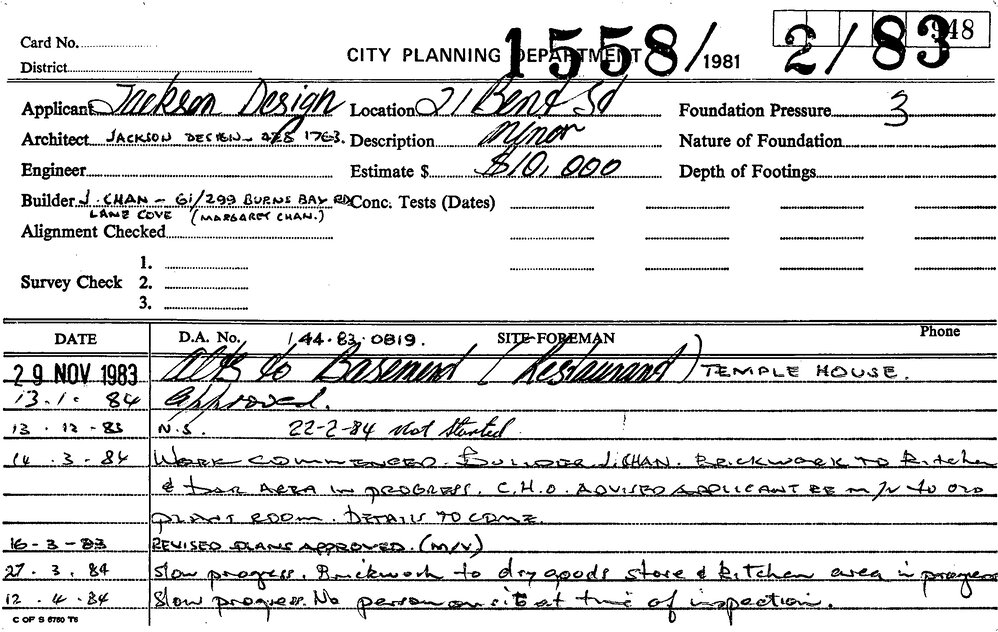 Card No.
CITY PLANNING DEPARTMENT 1558/1981 2/83 948
District
Applicant Jackson Design Location 21 Bent St Foundation Pressure 3
Architect JACKSON DESIGN - 278 1763. Description Minor Nature of Foundation
Engineer Estimate $ $10,000 Depth of Footings
Builder J. CHAN - 61/299 BURNS BAY RD Conc. Tests (Dates)
LANE COVE (MARGARET CHAN.)
Alignment Checked
1.
Survey Check 2.
3.
DATE D.A. No. 144.83.0819. SITE FOREMAN Phone
29 NOV 1983 Alts to Basement (Restaurant) TEMPLE HOUSE.
13.1.84 Approved.
13.12.83 N.S. 22-2-84 Not Started
14.3.84 WORK COMMENCED. BUILDER J. CHAN. BRICKWORK TO Kitchen
& BAR AREA IN PROGRESS. C.H.O. ADVISED APPLICANT RE M/V to OLD
PLANT ROOM. DETAILS TO COME.
16-3-83 REVISED PLANS APPROVED. (M/V)
27.3.84 Slow progress. Brickwork to dry goods store & kitchen area in progress
12.4.84 Slow progress. No person on site at time of inspection.
C OF S 6750 T6